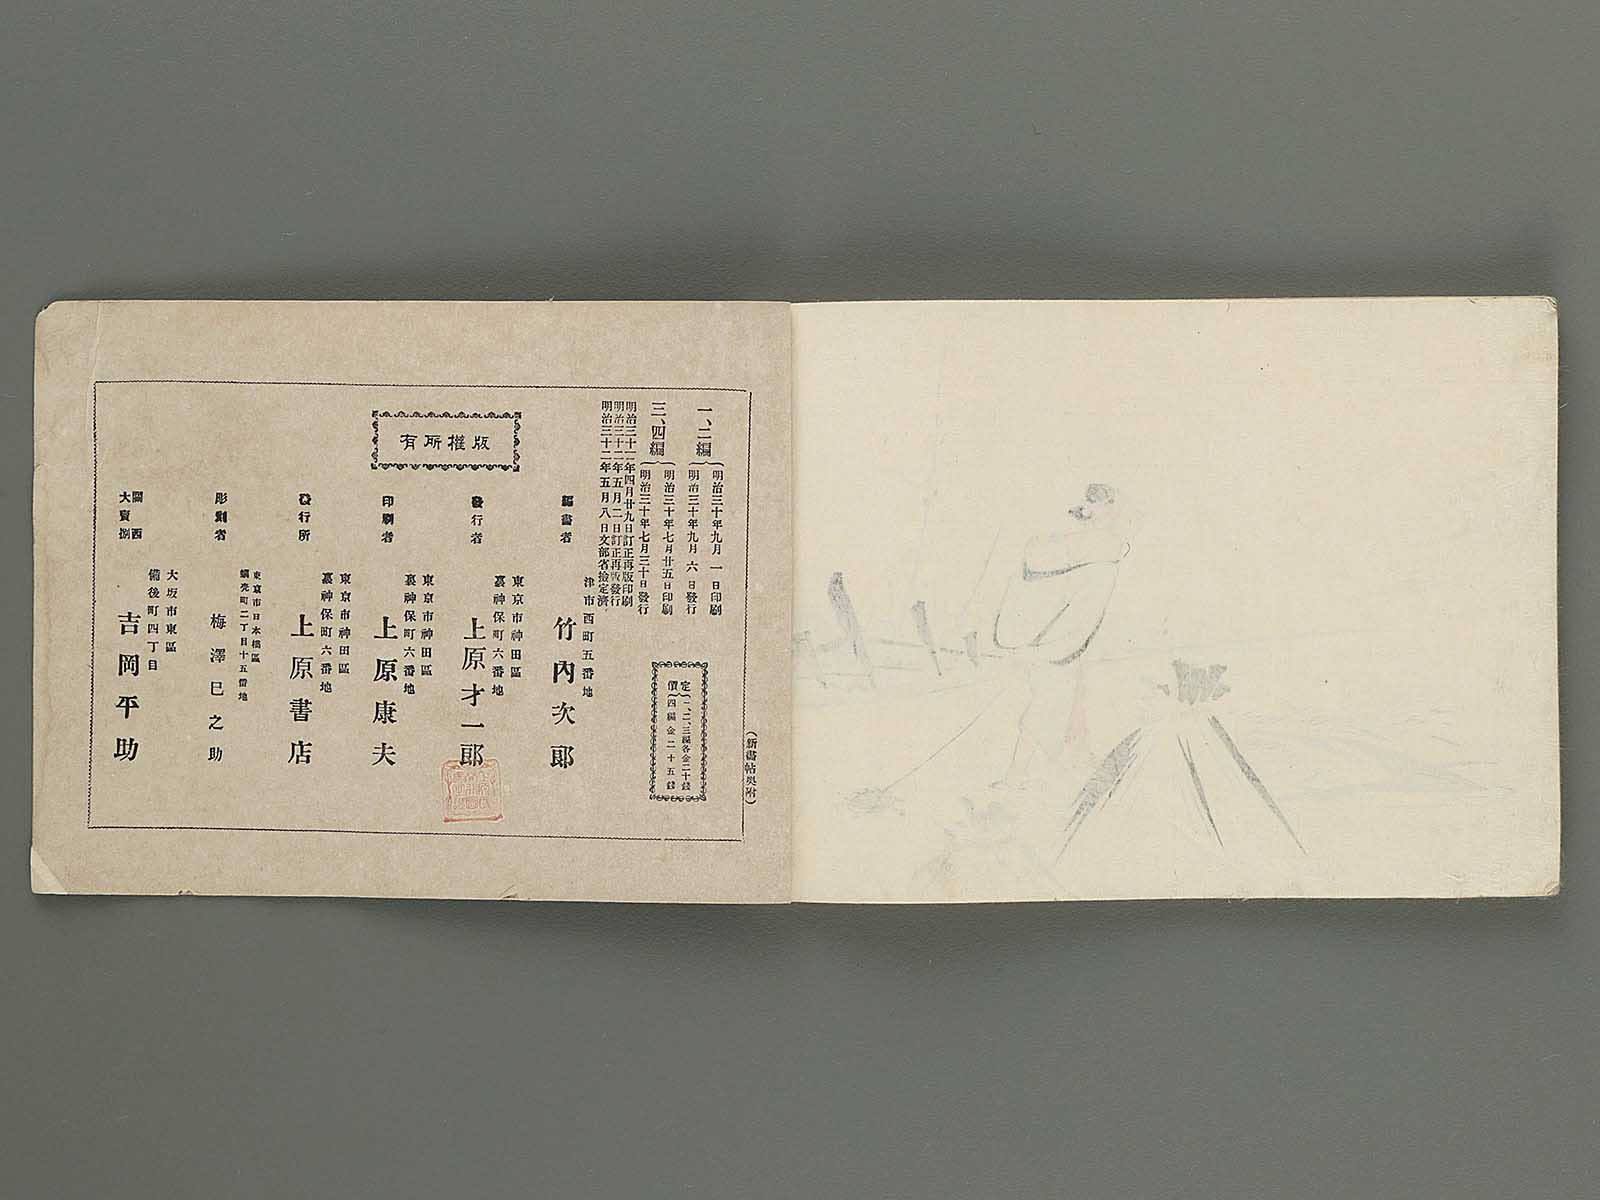 (新畵帖奥附)
一、二編
明治三十年九月一日印刷
明治三十年九月六日發行
三、四編
明治三十年七月廿五日印刷
明治三十年七月三十日發行
明治三十二年四月廿九日訂正再版印刷
明治三十二年五月二日訂正再版發行
明治三十二年五月八日文部省檢定濟
定價
一、二、三編各金二十錢
四編金二十五錢
版權所有
津市西町五番地
編畵者 竹內次郎
東京市神田區
裏神保町六番地
發行者 上原才一郎
東京市神田區
裏神保町六番地
印刷者 上原康夫
東京市神田區
裏神保町六番地
發行所 上原書店
東京市日本橋區
蠣壳町二丁目十五番地
彫刻者 梅澤巳之助
大坂市東區
備後町四丁目
關西
大賣捌 吉岡平助